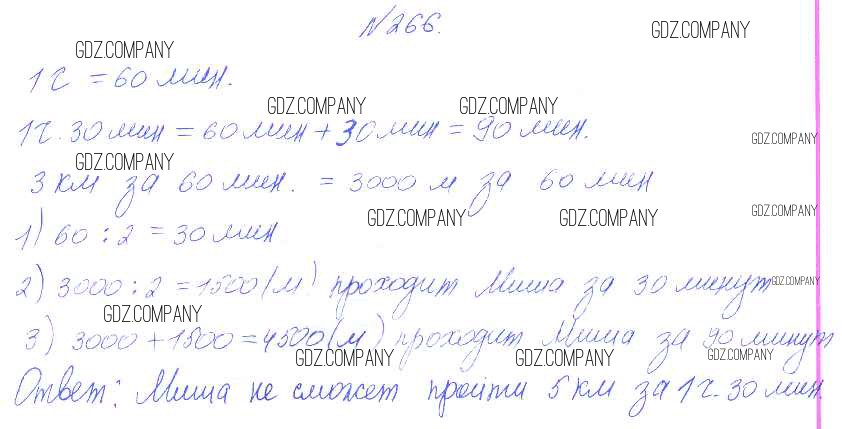 №266.
GDZ.COMPANY GDZ.COMPANY
1 г = 60 мин.
GDZ.COMPANY GDZ.COMPANY
1 г. 30 мин = 60 мин + 30 мин = 90 мин.
GDZ.COMPANY
GDZ.COMPANY
3 км за 60 мин. = 3000 м за 60 мин
GDZ.COMPANY GDZ.COMPANY GDZ.COMPANY
1) 60 : 2 = 30 мин
2) 3000 : 2 = 1500 (м) проходит Миша за 30 минут
GDZ.COMPANY
GDZ.COMPANY
3) 3000 + 1500 = 4500 (м) проходит Миша за 90 минут
GDZ.COMPANY GDZ.COMPANY GDZ.COMPANY
Ответ: Миша не сможет пройти 5 км за 1 г. 30 мин.